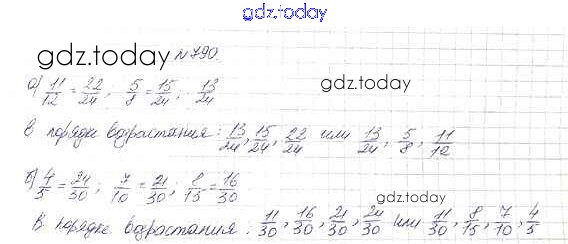 gdz.today
gdz.today №790.
а) 11/12 = 22/24; 5/8 = 15/24; 13/24
gdz.today
В порядке возрастания: 13/24, 15/24, 22/24 или 13/24, 5/8, 11/12
б) 4/5 = 24/30; 7/10 = 21/30; 8/15 = 16/30
gdz.today
В порядке возрастания: 11/30, 16/30, 21/30, 24/30 или 11/30, 8/15, 7/10, 4/5